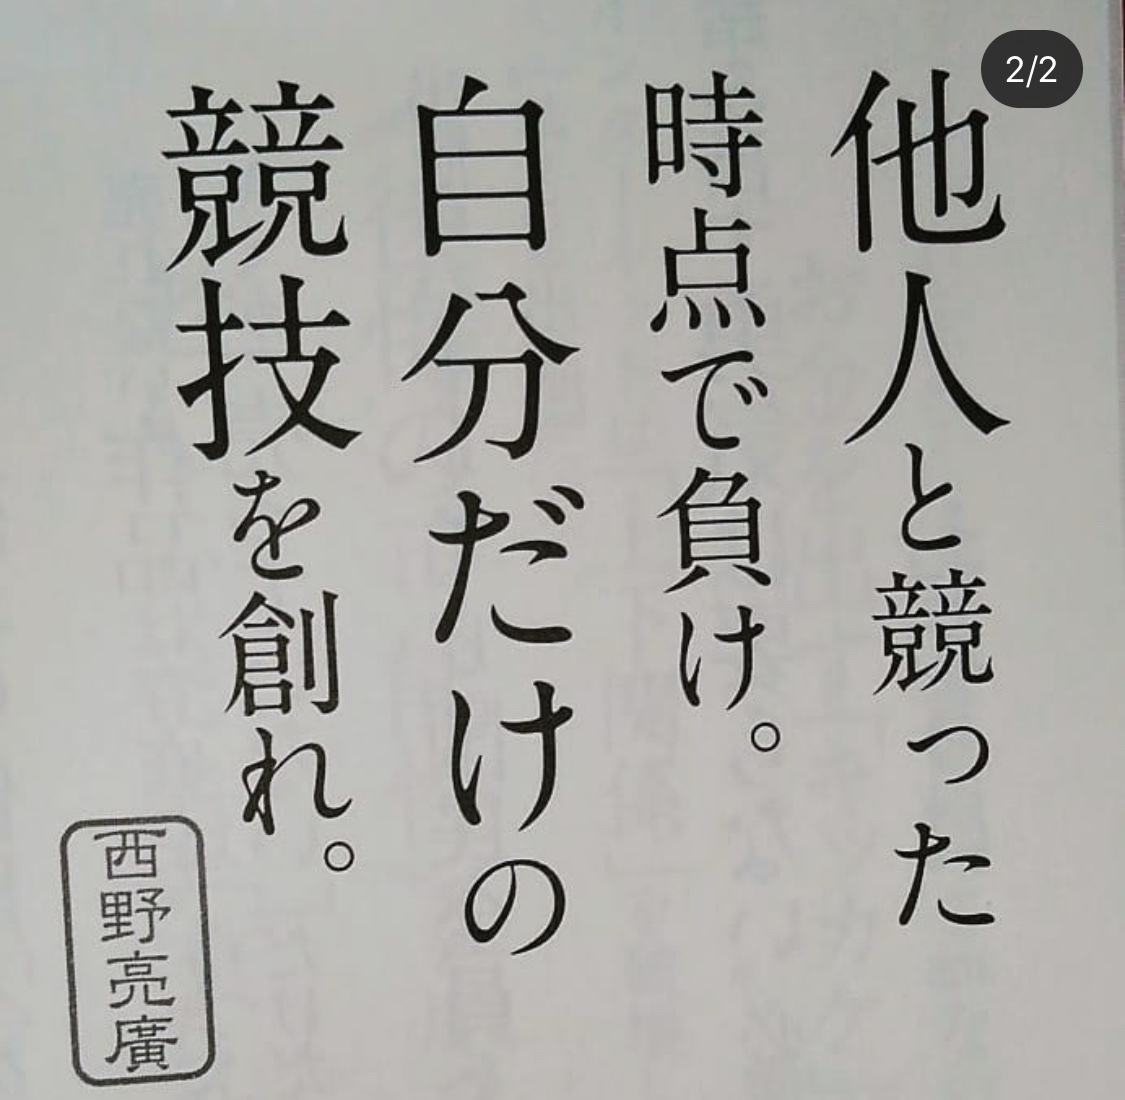 他人と競った
時点で負け。
自分だけの
競技を創れ。
西野亮廣
2/2